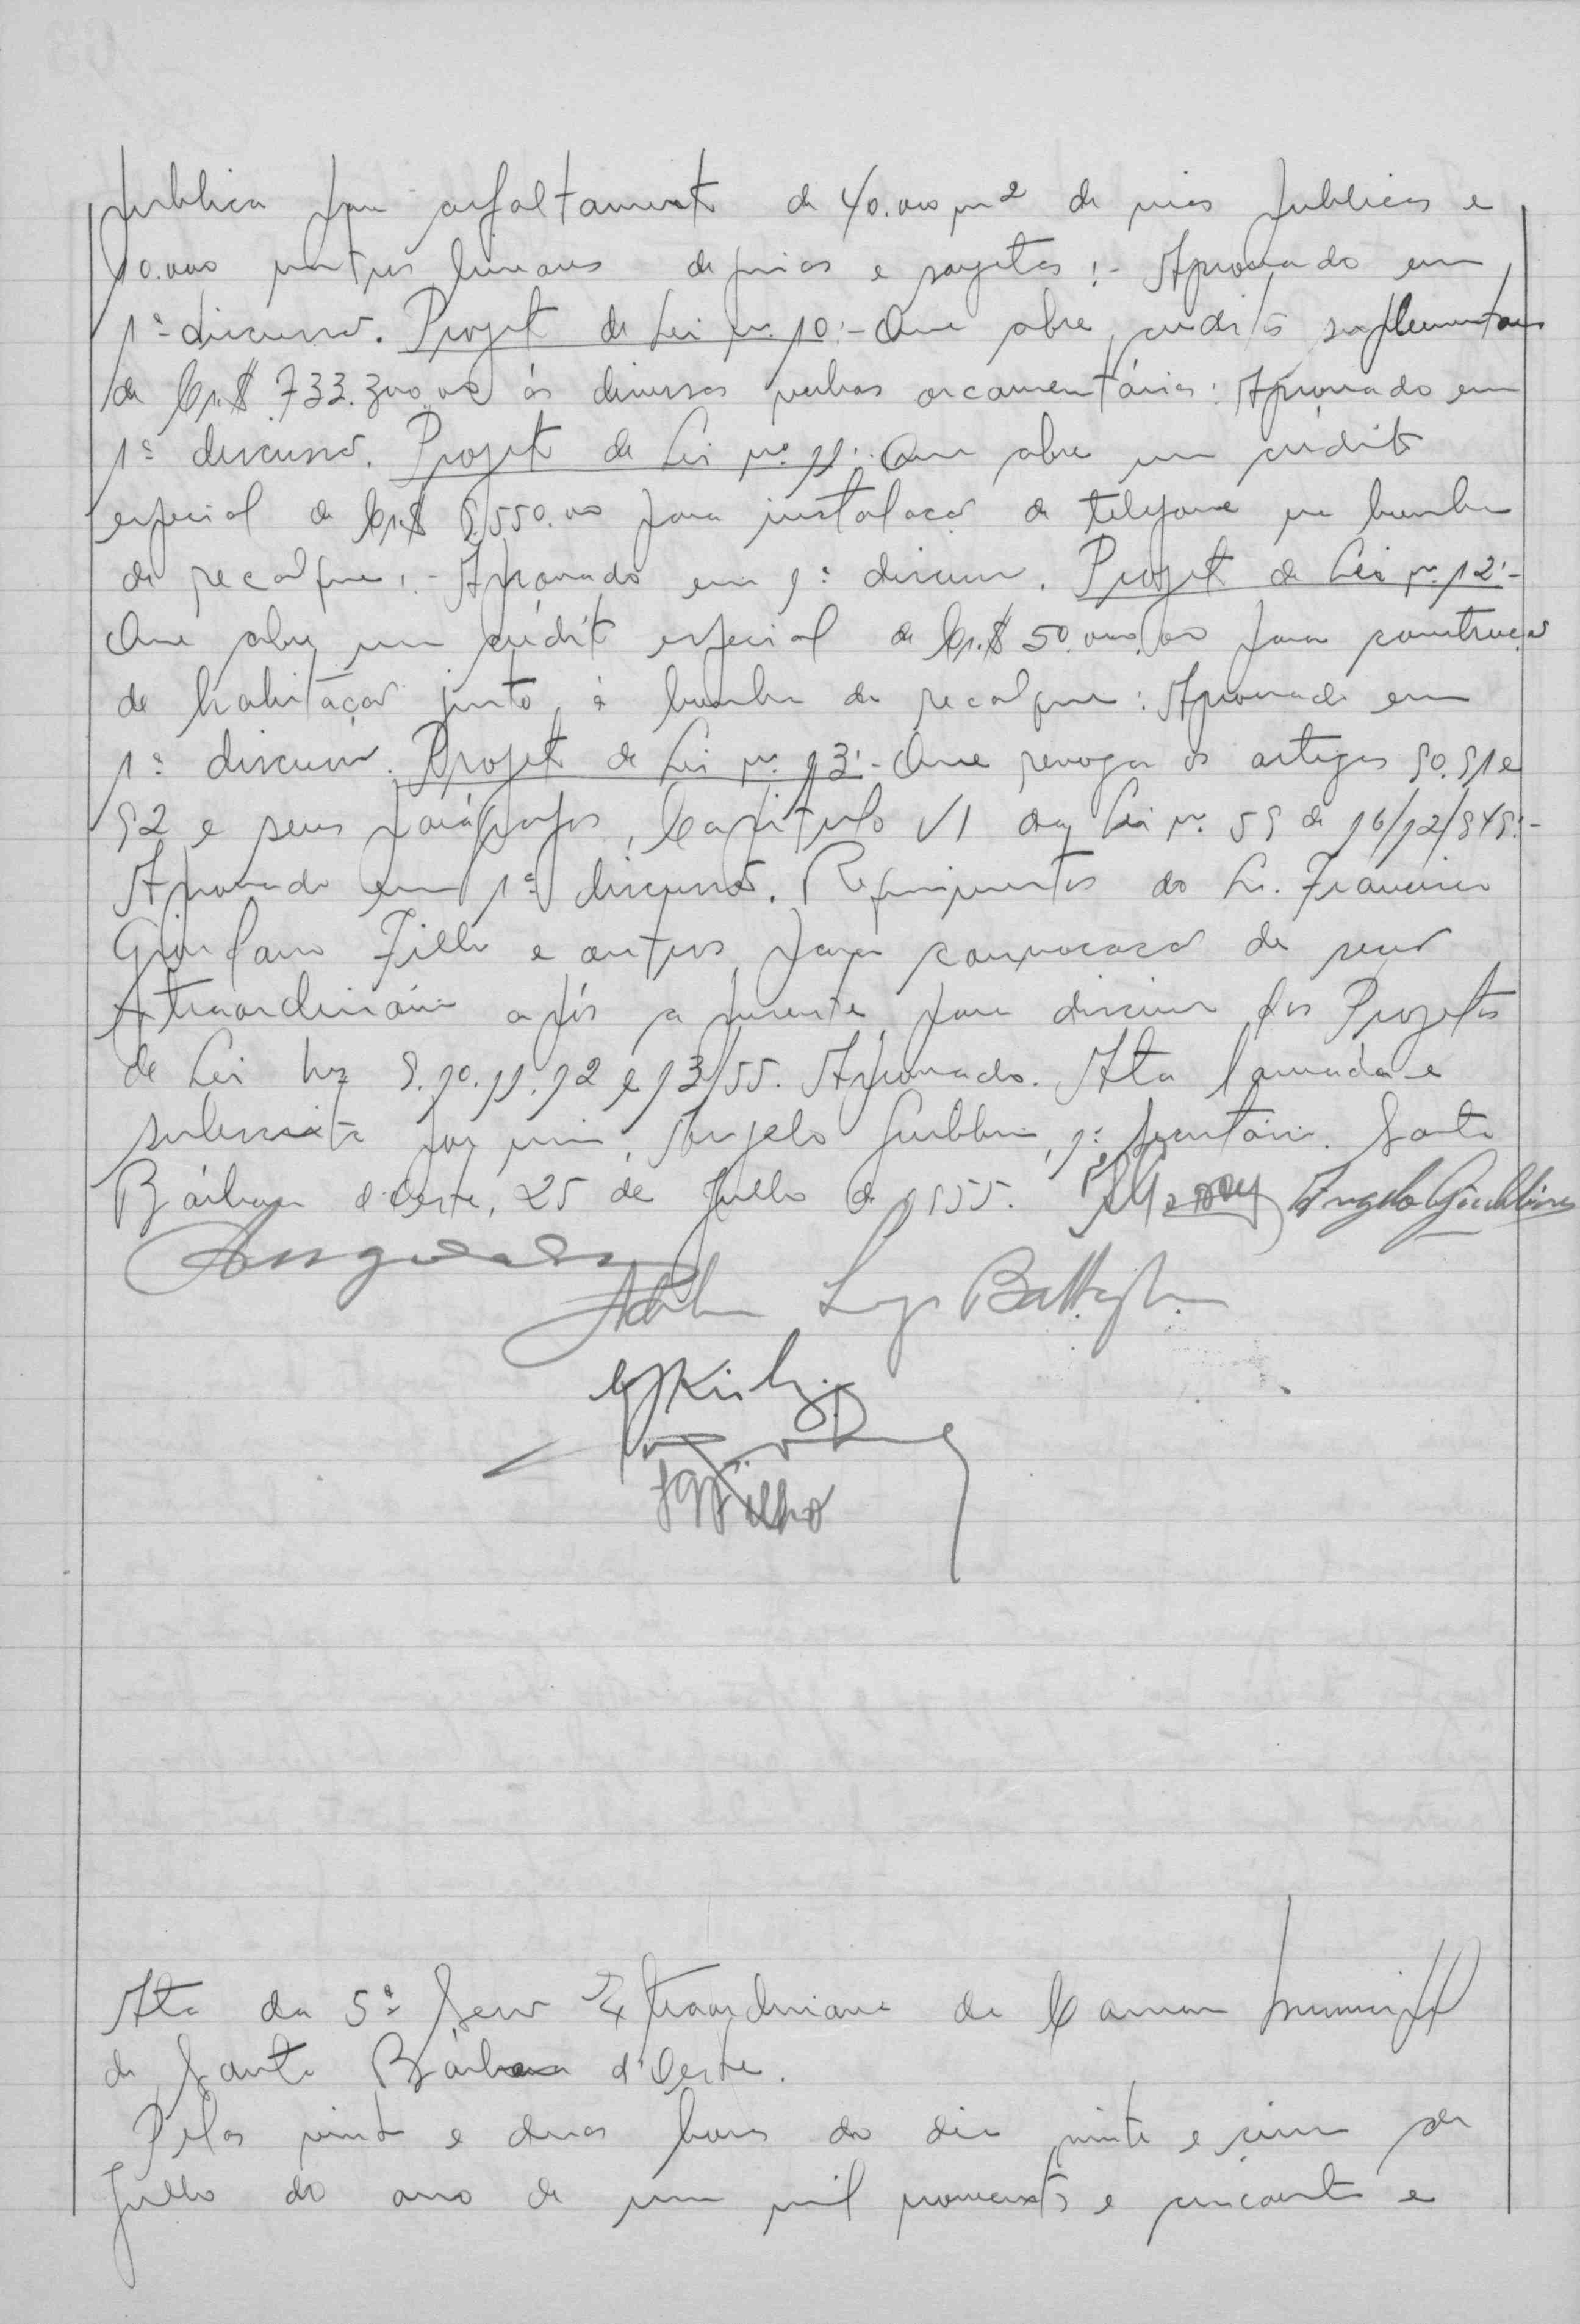 publica para asfaltamento de 40.000 m2 de vias publicas e
10.000 metros lineares de guias e sargetas:- Aprovado em
1ª discussão. Projeto de Lei nº 10:- Que abre creditos suplementares
de Cr.$ 733.300,00 ás diversas verbas orcamentárias: Aprovado em
1ª discussão. Projeto de Lei nº 11: Que abre um credito
especial de Cr.$ 550.00 para instalacao de telefone na bomba
de recalque:- Aprovado em 1ª discussão. Projeto de Lei nº 12:-
Que abre um crédito especial de Cr.$ 50.000,00 para construcao
de habitação junto á bomba de recalque: Aprovado em
1ª discussão. Projeto de Lei nº 13:- Que revoga os artigos 90.91 e
92 e seus parágrafos, Capitulo VI da Lei nº 59 de 16/12/949:-
Aprovado em 1ª discussão. Requerimentos do Sr. Francisco
Giordano Filho e outros para convocacao de sessão
extraordinária após a presente para discussão dos Projetos
de Lei 9.10.11.12 e 13/55. Aprovado. Ata lavrada e
subscrita por mim, Angelo Giubbina, 1º secretário. Santa
Bárbara d'Oeste, 25 de Julho de 1955. Angelo Giubbina
Luiz Battaglia
Filho
Ata da 5ª Sessão Extraordinaria da Camara Municipal
de Santa Bárbara d'Oeste.
Pelas vinte e duas horas do dia vinte e cinco de
Julho do ano de um mil novecentos e cincoenta e